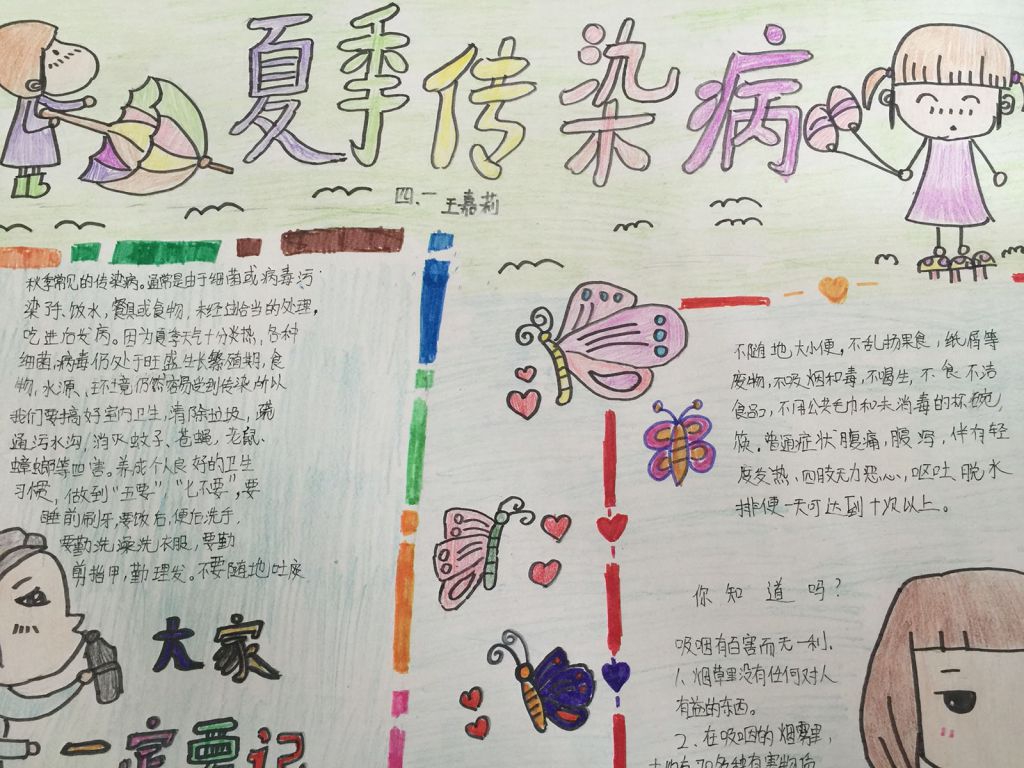 夏季传染病
四.一 王嘉莉
秋季常见的传染病。通常是由于细菌或病毒污
染了手、饮水,餐具或食物,未经过恰当的处理,
吃进后发病。因为夏季天气十分炎热,各种
细菌,病毒仍处于旺盛生长繁殖期,食
物,水源、环境仍然容易受到传染所以
我们要搞好室内卫生,清除垃圾,疏
通污水沟,消灭蚊子、苍蝇,老鼠、
蟑螂等四害。养成个人良好的卫生
习惯,做到“五要”“七不要”,要
睡前刷牙,要饭后,便后洗手,
要勤洗澡洗衣服,要勤
剪指甲,勤理发。不要随地吐痰
大家
一定要记
不随地大小便,不乱扔果食,纸屑等
废物,不吸烟和毒,不喝生,不食不洁
食品,不用公共毛巾和未消毒的杯碗,
筷.普通症状腹痛,腹泻,伴有轻
度发热、四肢无力恶心、呕吐、脱水
排便一天可达到十次以上。
你知道吗?
吸烟有百害而无一利.
1、烟草里没有任何对人
有益的东西。
2、在吸的烟雾里,
有70多种有害物质